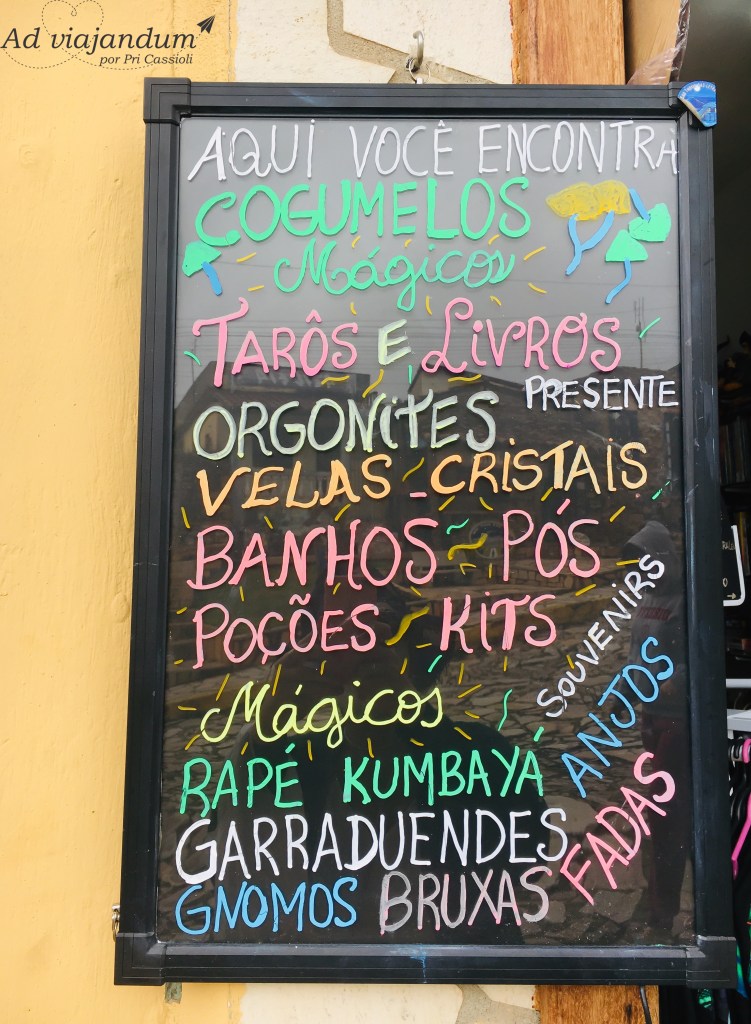 Ad viajandum
por Pri Cassioli
AQUI VOCÊ ENCONTRA
COGUMELOS
Mágicos
TARÔS E LIVROS
PRESENTE
ORGONITES
VELAS - CRISTAIS
BANHOS ~ PÓS
POÇÕES ~ KITS
SOUVENIRS
Mágicos
ANJOS
RAPÉ KUMBAYÁ
FADAS
GARRADUENDES
GNOMOS BRUXAS